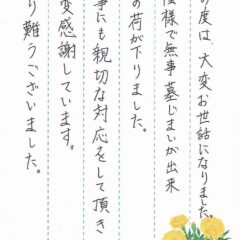 の度は大変お世話になりました。
様で無事墓じまいが出来
の荷が下りました。
事にも親切な対応をして頂き
変感謝しています。
り難うございました。